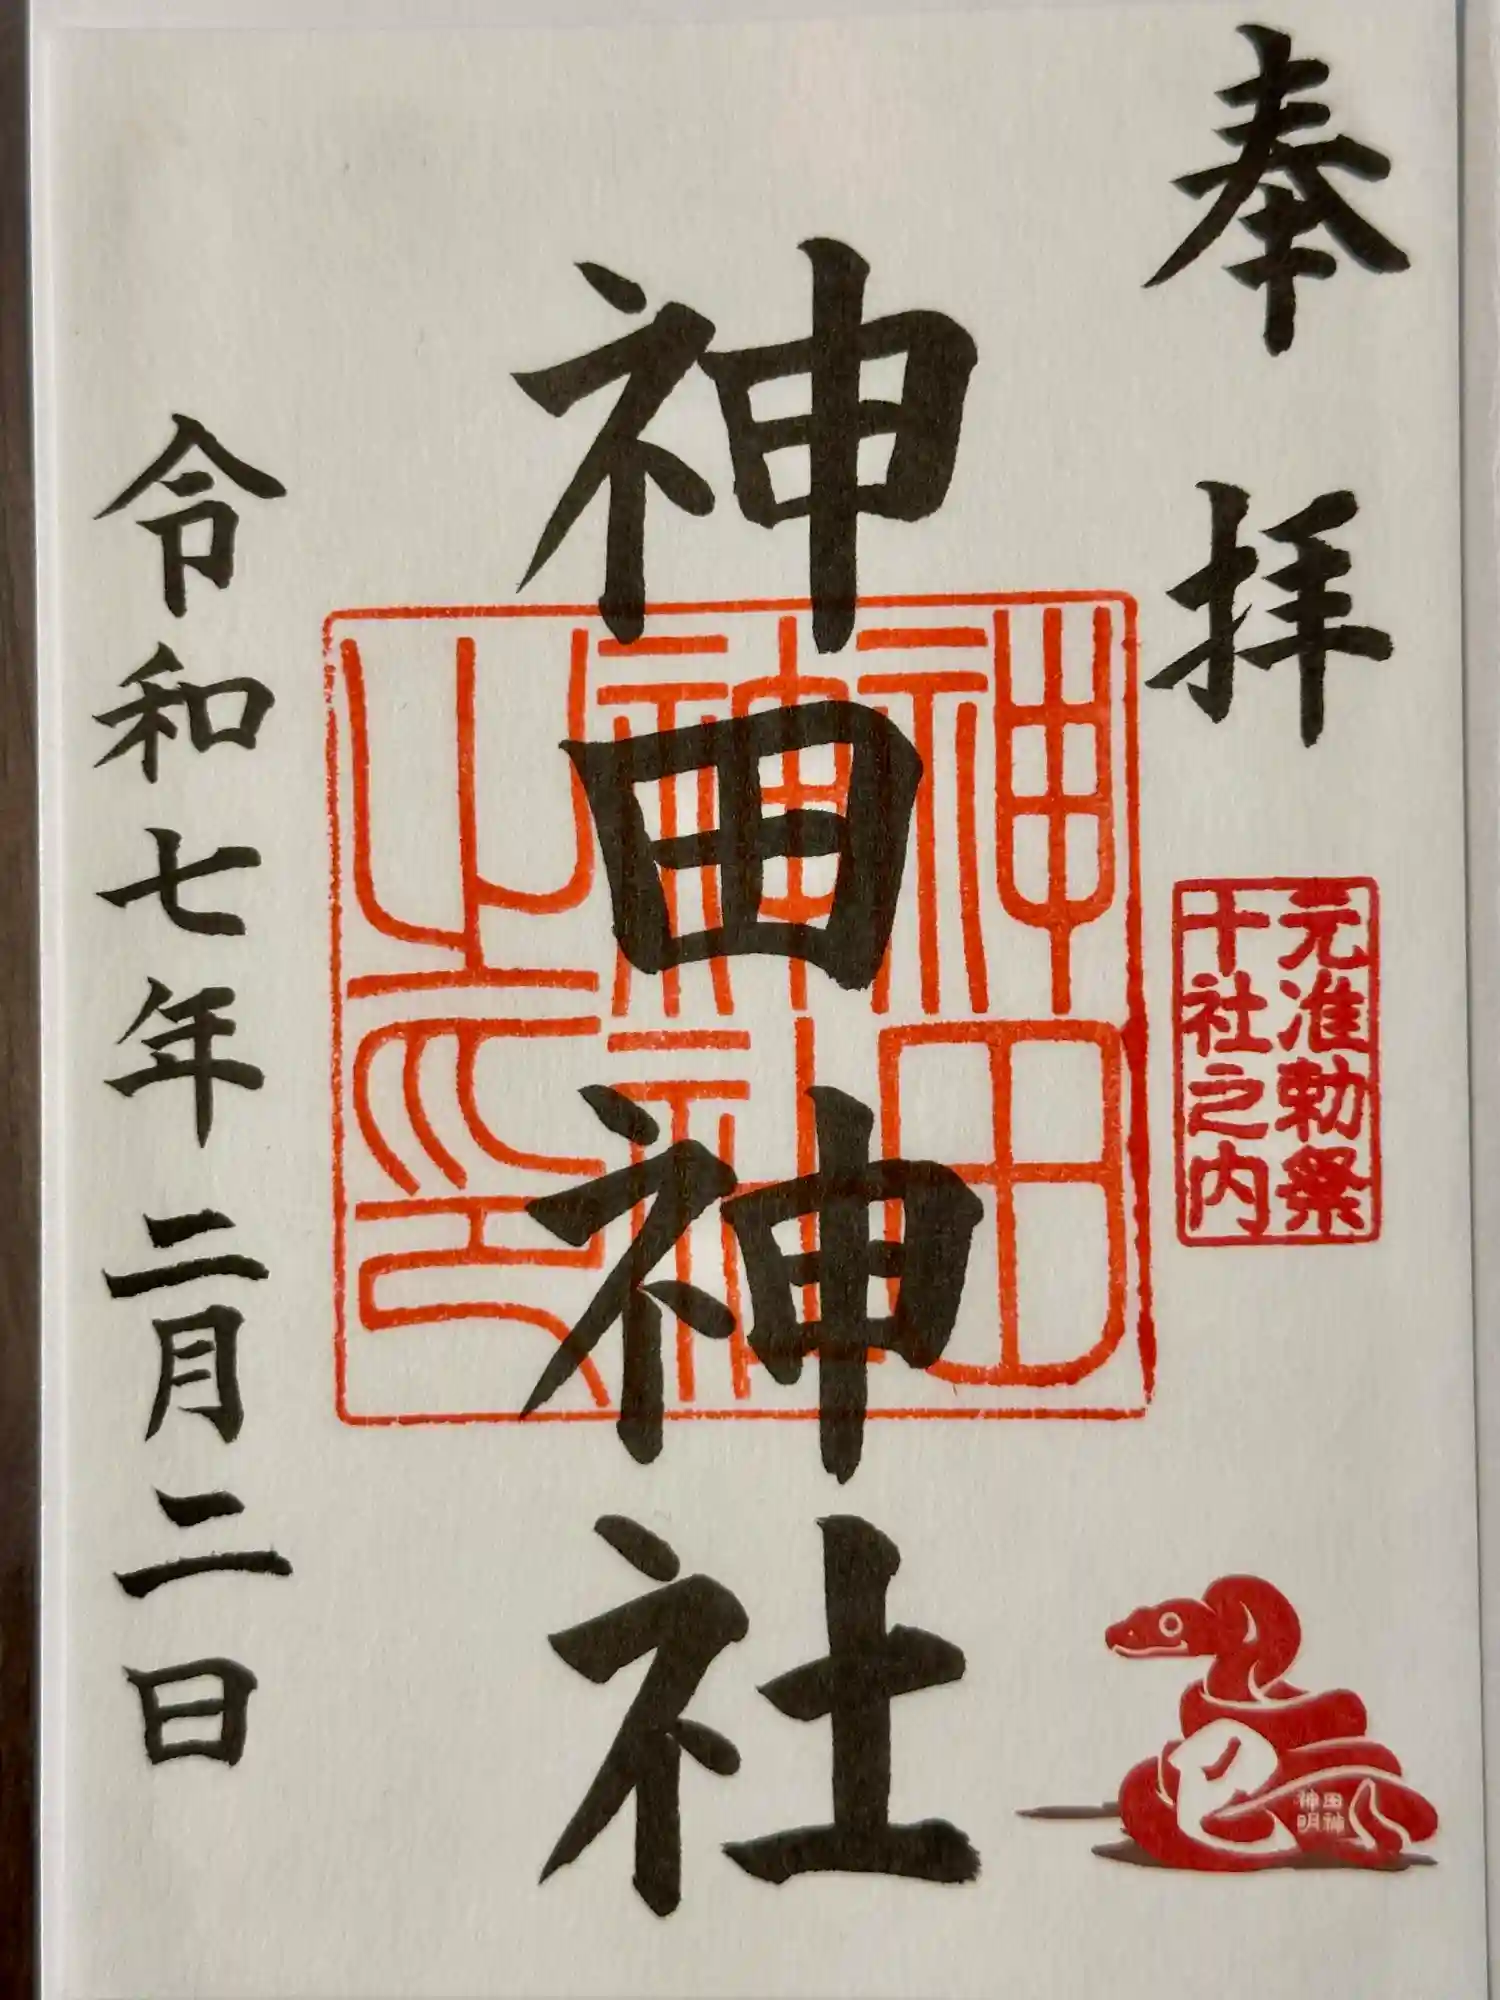 奉拝
元准勅祭
十社之内
巳
神田神明
神田神社
神田
神社
之印
令和七年二月二日